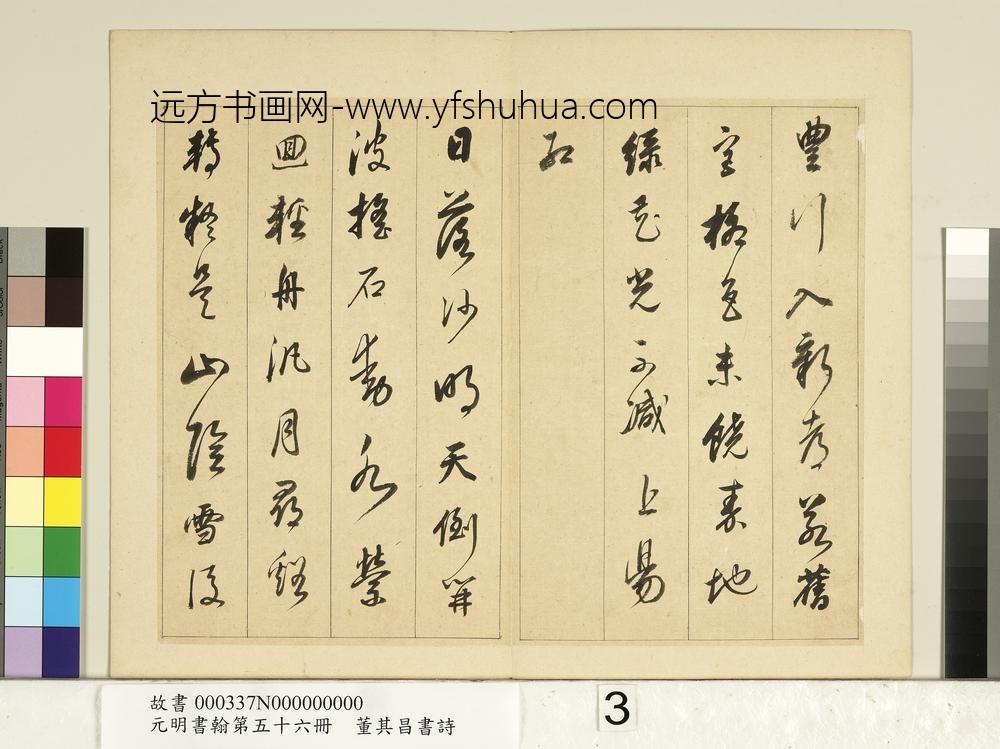 远方书画网-www.yfshuhua.com
豐行入新都若舊
宮柳色未饒秦地
綠花光不減上陽
紅
日落沙明天倒開
波搖石動水縈
囬輕舟汎月尋谿
轉疑是山陰雪後
故書 000337N000000000
元明書翰第五十六冊 董其昌書詩
3